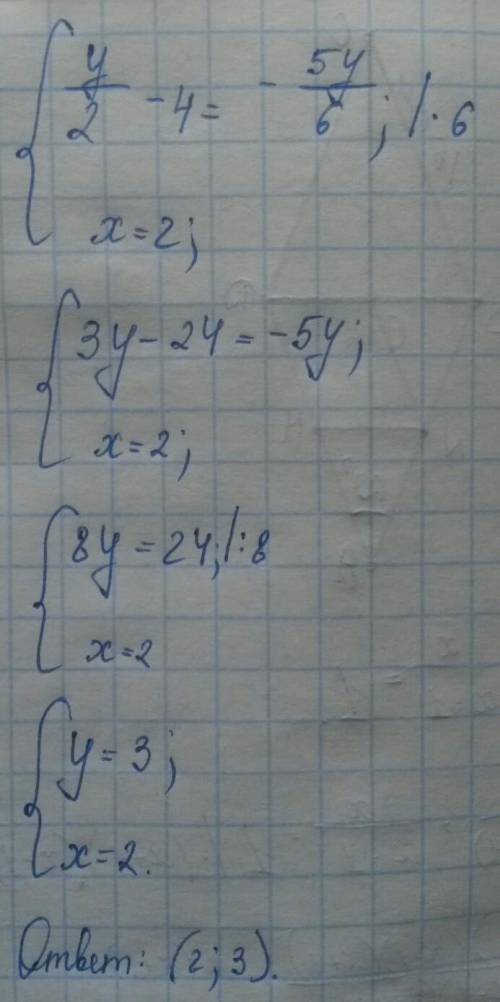 y/2 - 4 = - 5y/6; /· 6
x = 2;
3y - 24 = -5y;
x = 2;
8y = 24; /: 8
x = 2
y = 3;
x = 2.
Ответ: (2; 3).